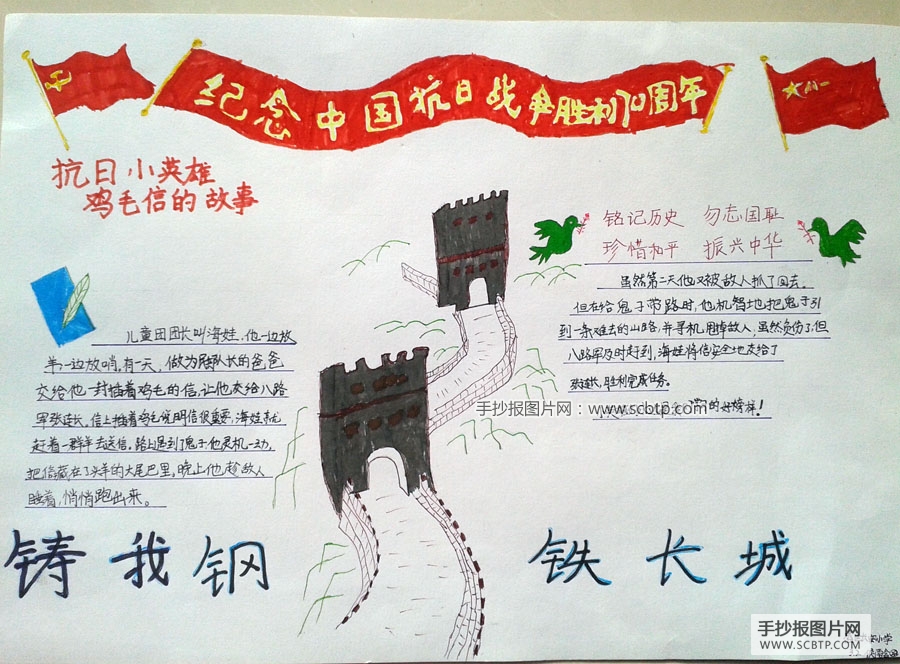 纪念中国抗日战争胜利70周年
八一
抗日小英雄
鸡毛信的故事
铭记历史 勿忘国耻
珍惜和平 振兴中华
儿童团团长叫海娃,他一边放
羊一边放哨,有一天,做为队长的爸爸
交给他一封插着鸡毛的信,让他交给八路
军张连长,信上插着鸡毛说明信很重要,海娃就
赶着一群羊去送信。路上遇到了鬼子他灵机一动,
把信藏在了头羊的大尾巴里,晚上他趁敌人
睡着,悄悄跑出来。
虽然第二天他又被敌人抓了回去,
但在给鬼子带路时,他机智地把鬼子引
到一条难走的山路,并寻机甩掉敌人,虽然负伤了但
八路军及时赶到,海娃将信安全地交给了
张连长,胜利完成任务。
的好榜样!
手抄报图片网:www.scbtp.com
铸我钢 铁长城
手抄报图片网
WWW.SCBTP.COM
小学